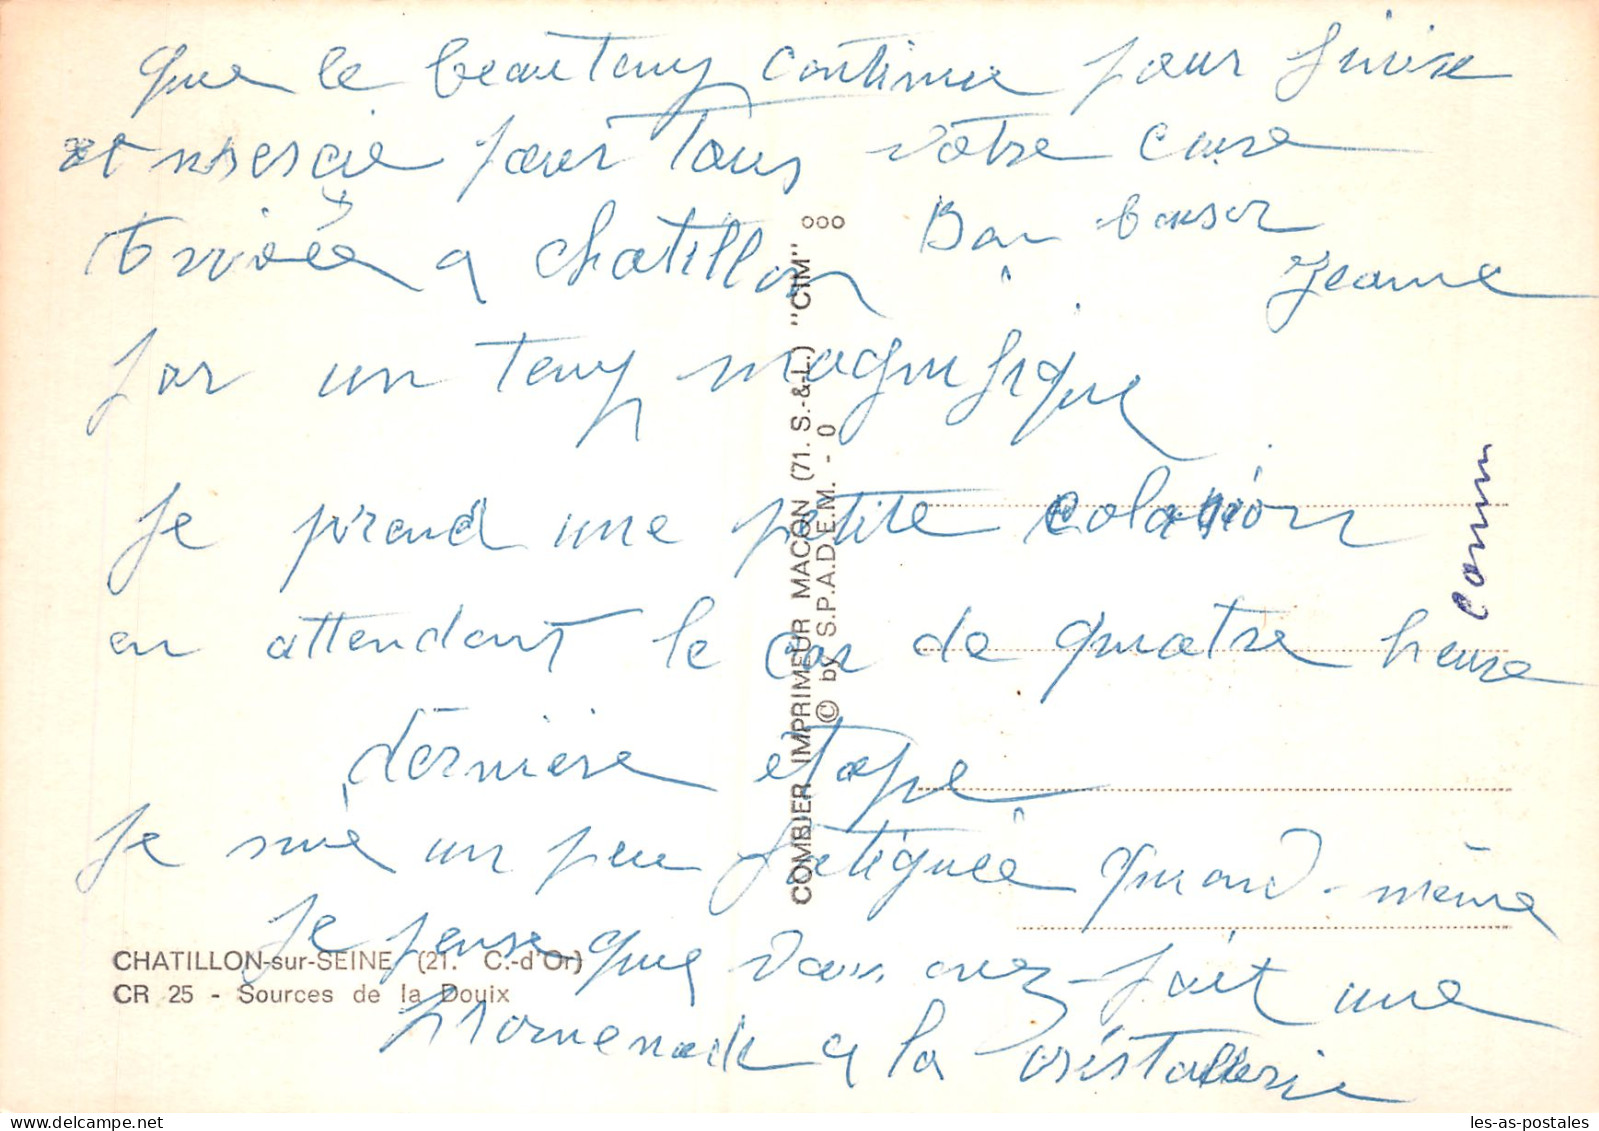 que le beau temp continue pour finire
et mercie pour tous votre cure
Bon baiser
Jeanne
Arrivée a chatillon
par un temp magnifique
Je prend une petite colation
en attendant le car de quatre heure
dernière étape
Je suie un peu fatiguée quand-même
Je pense que vous avez fait une
promenade a la cristallerie
CHATILLON-sur-SEINE (21. C.-d'Or)
CR 25 - Sources de la Douix
COMBIER IMPRIMEUR MACON (71. S.-&-L.) "CIM" ooo
© by S.P.A.D.E.M. - 0
les-as-postales